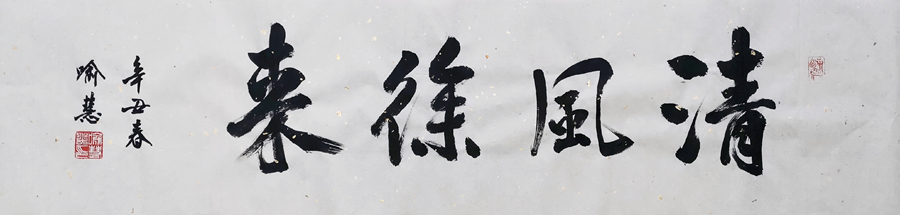 清風徐来
辛丑春
喻慧